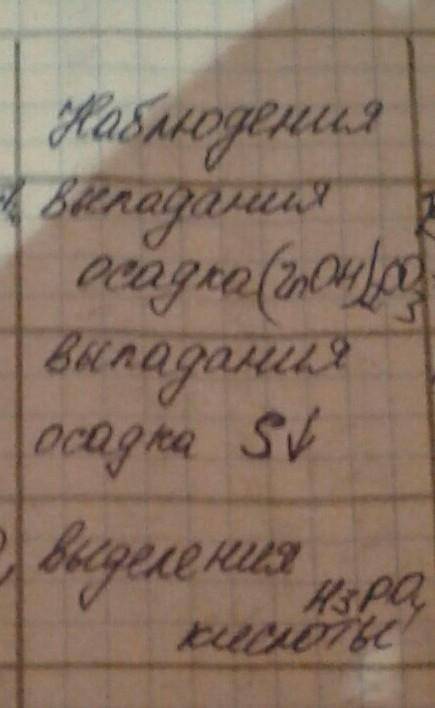 Наблюдения
выпадания
осадка (ZnOH)₂CO₃
выпадания
осадка S↓
выделения
H₃PO₄
кислоты